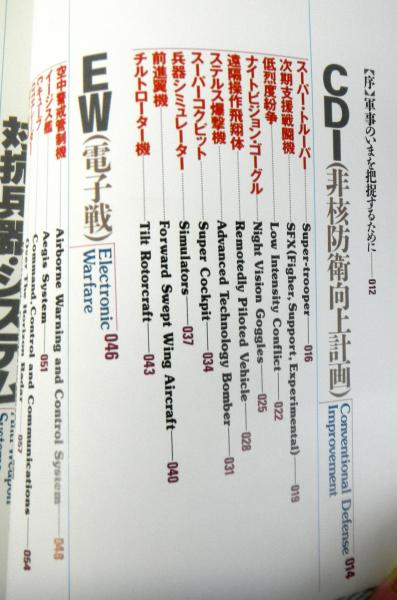 【序】軍事のいまを把捉するために——012
CDI(非核防衛向上計画) Conventional Defense Improvement 014
スーパー・トルーパー Super-trooper 016
次期支援戦闘機 SFX(Figher, Support, Experimental) 019
低烈度紛争 Low Intensity Conflict 022
ナイトビジョン・ゴーグル Night Vision Goggles 025
遠隔操作飛翔体 Remotely Piloted Vehicle 028
ステルス爆撃機 Advanced Technology Bomber 031
スーパーコクピット Super Cockpit 034
兵器シミュレーター Simulators 037
前進翼機 Forward Swept Wing Aircraft 040
チルトローター機 Tilt Rotorcraft 043
EW(電子戦) Electronic Warfare 046
空中警戒管制機 Airborne Warning and Control System 048
イージス艦 Aegis System 051
Command, Control and Communications 054
Over The Horizon Radar 057
対抗兵器・システム Weapon Systems